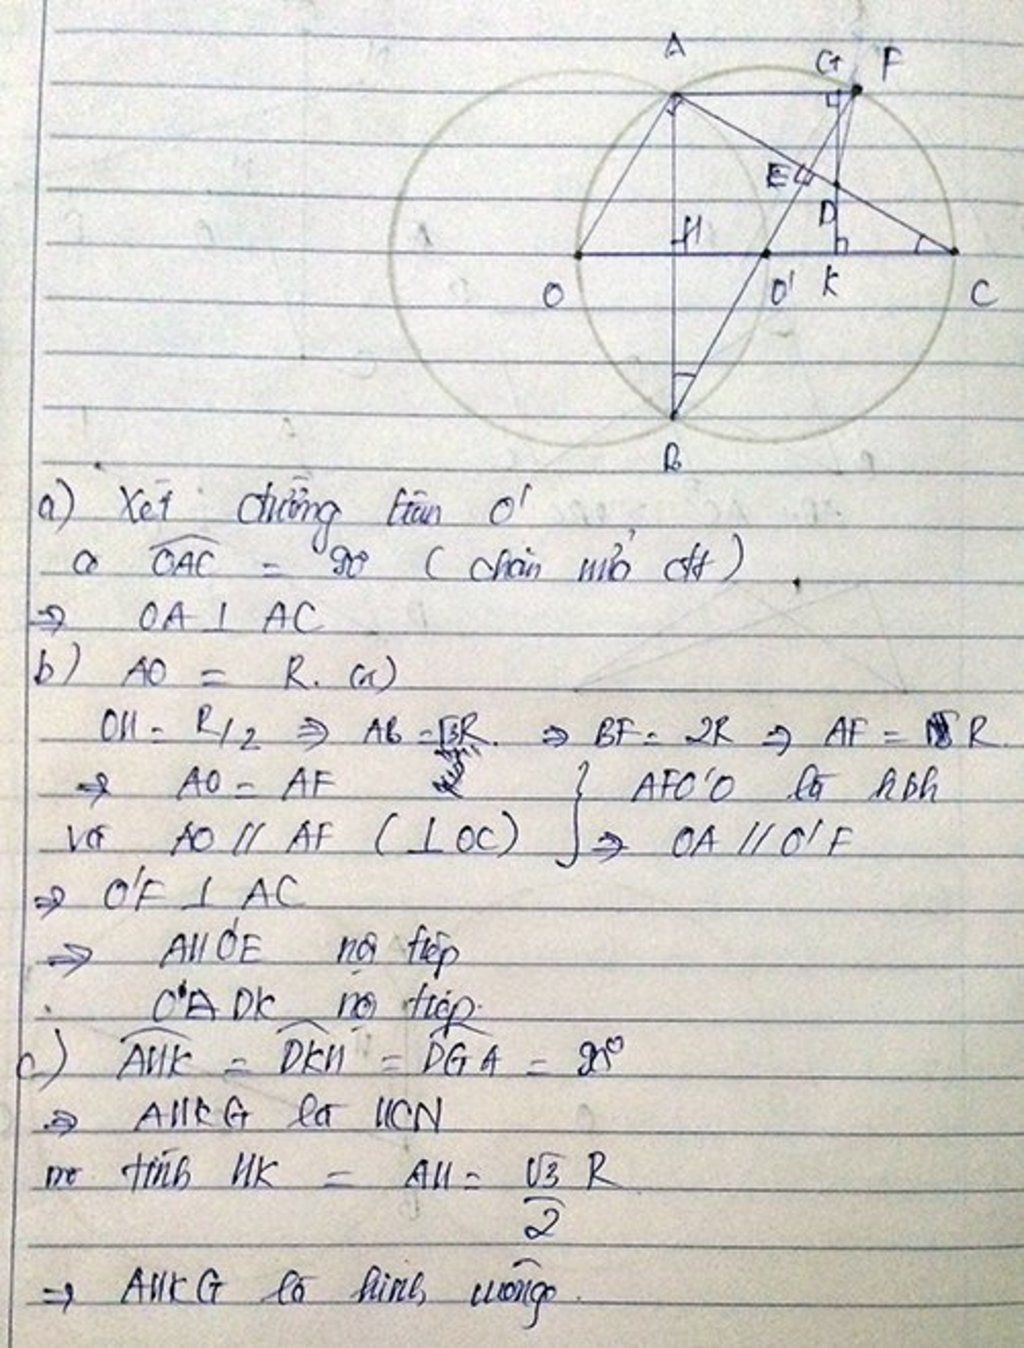 A
G F
E
D
H
O O' K C
B
a) Xét đường tròn O'
có OAC = 90° ( chắn nửa đt )
=> OA ⊥ AC
b) AO = R. (1)
OH = R/2 => AB = √3R. => BF = 2R => AF = R
=> AO = AF } AFO'O là hbh
và AO // AF ( ⊥ OC) => OA // O'F
=> O'F ⊥ AC
=> AHO'E nội tiếp
O'EDK nội tiếp.
c) AHK = DKH = DGA = 90°
=> AHKG là HCN
mà tính HK = AH = √3/2 R
=> AHKG là hình vuông.